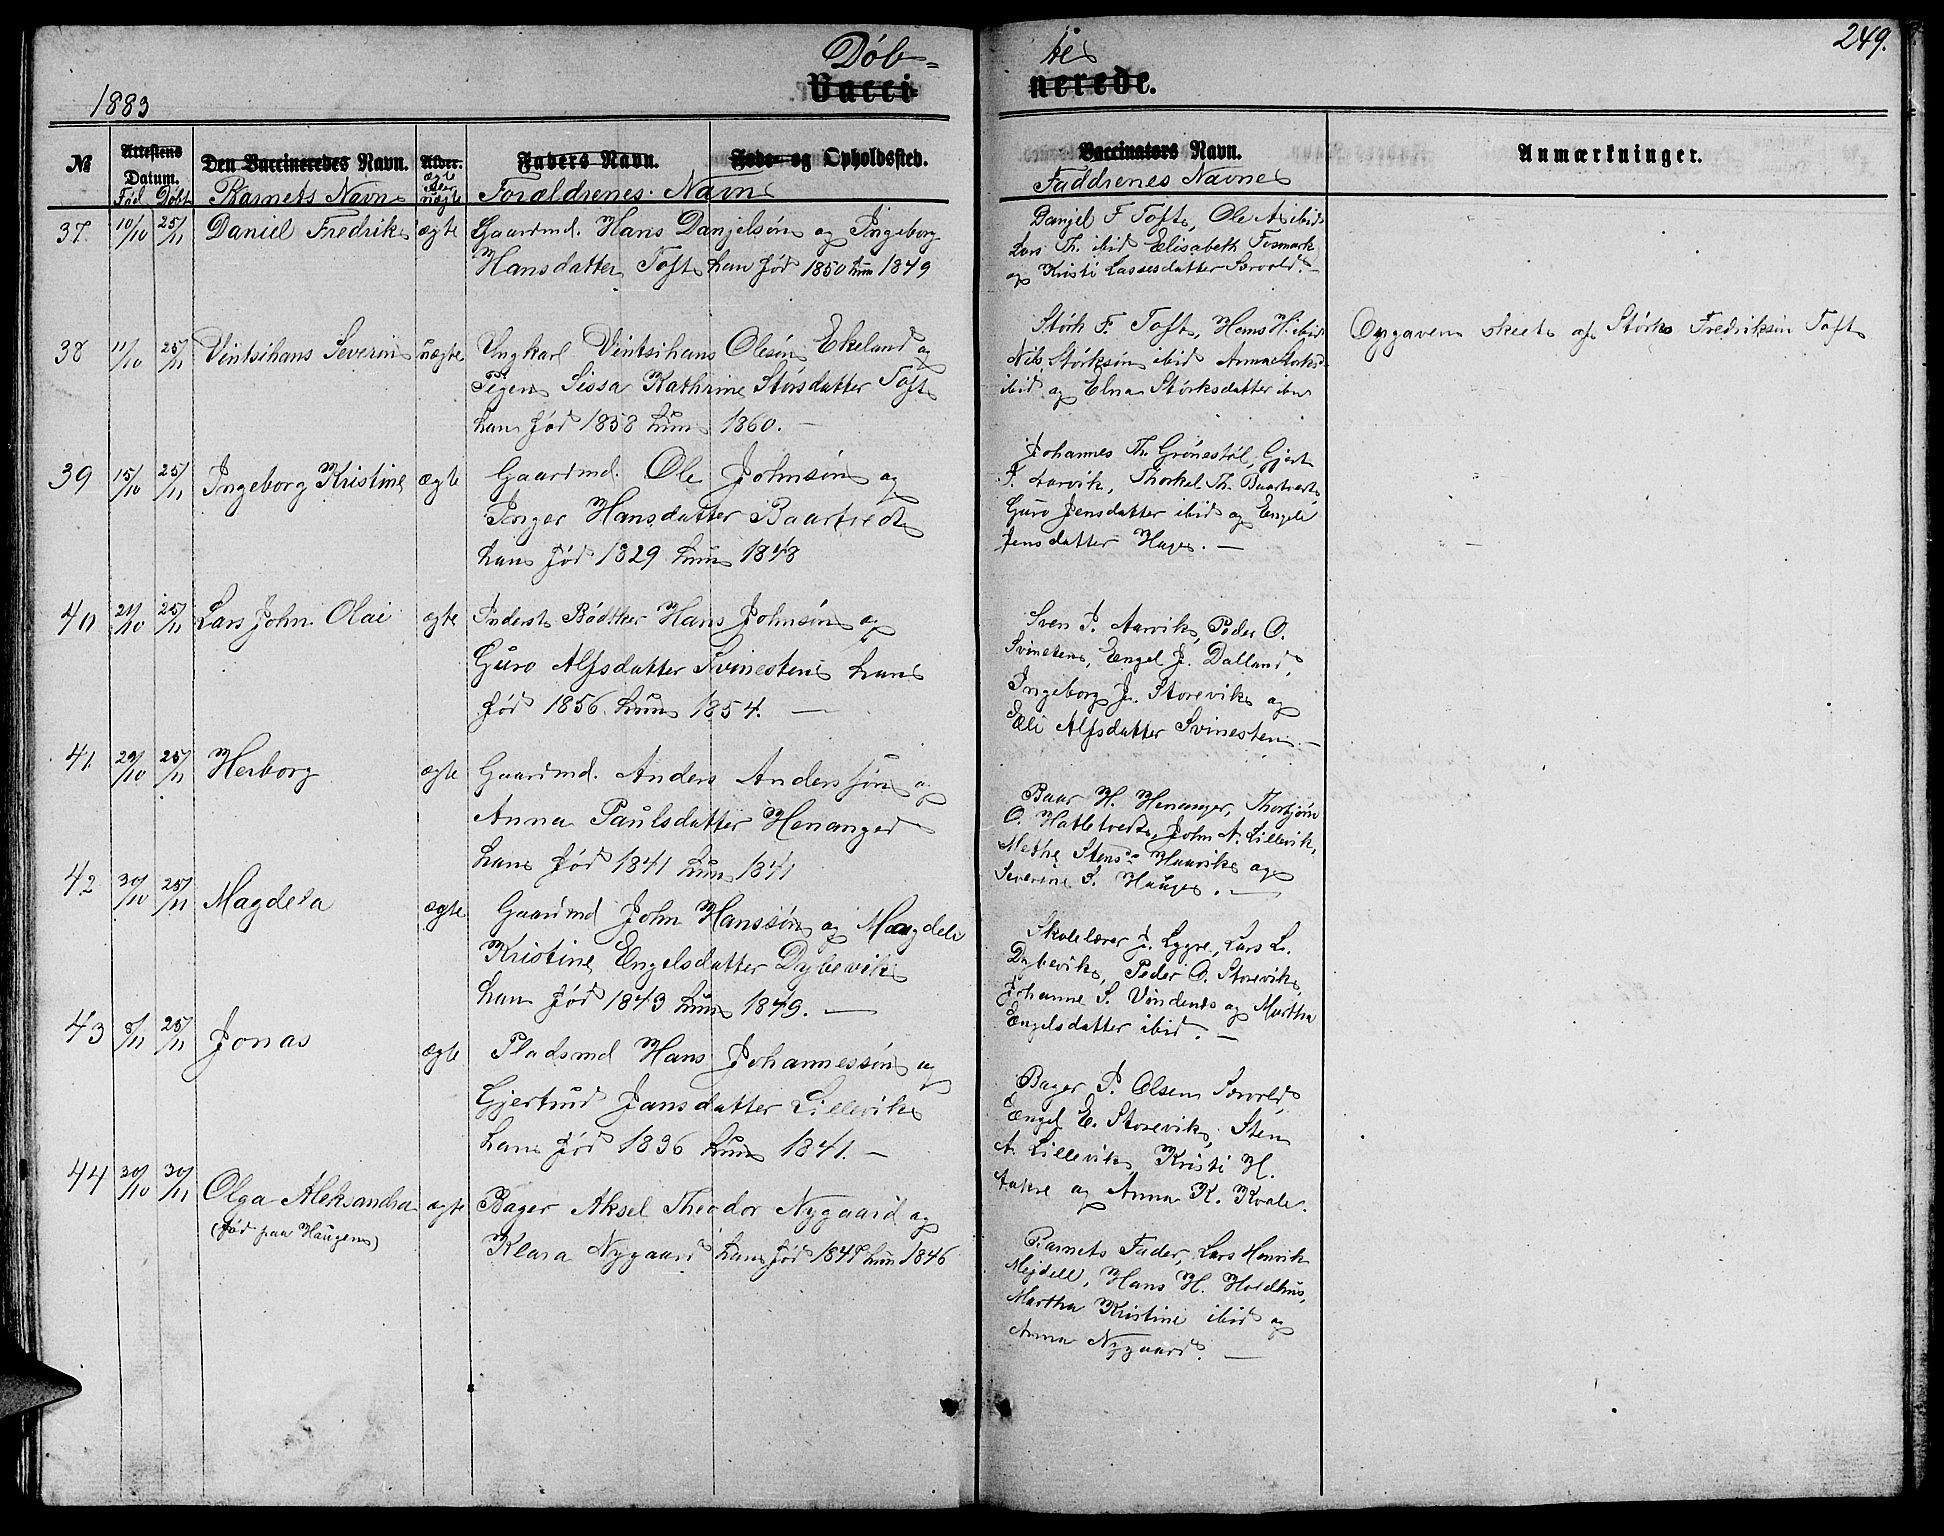 249.
Døb- te
Vacci- nerede.
1883
№ Attestens Datum. Den Vaccineredes Navn. Alder. Faders Navn. Føde- og Opholdssted. Vaccinators Navn. Anmærkninger.
Fød Døbt Barnets Navn ægte eller uægte Forældrenes Navn Faddrenes Navne
37. 10/10 25/11 Daniel Fredrik ægte Gaardmd. Hans Danjelsøn og Ingeborg
Hansdatter Toft han fød 1850 hun 1849
Danjel F. Toft, Ole A. ibid
Lars Th. ibid Elisabeth Fosmark
og Kristi Lassesdatter Sørvold. –
38 11/10 25/11 Vintsihans Severin uægte Ungkarl Vintsihans Olesøn Ekeland og
Pigen Sissa Kathrine Størsdatter Toft
han fød 1858 hun 1860. –
Størk F. Toft, Hans H. ibid
Nils Størksøn ibid Anna Størksd
ibid og Elna Størksdatter ibid
Opgaven skeet af Størk Fredriksøn Toft
39 15/10 25/11 Ingeborg Kristine ægte Gaardmd. Ole Johnsøn og
Inger Hansdatter Baartvedt
han fød 1829 hun 1848
Johannes Th. Grønestøl, Gjert
T. Aarvik, Thorkel Th. Baartvedt,
Guro Jensdatter ibid og Engele
Jensdatter Hage. –
40 21/10 25/11 Lars John Olai ægte Inderst Bødtker Hans Johnsøn og
Guro Alfsdatter Svinesten han
fød 1856 hun 1854. –
Sven J. Aarvik, Peder O.
Svinesten, Engel J. Dalland,
Ingeborg J. Storevik og
Eli Alfsdatter Svinesten. –
41. 29/10 25/11 Herborg ægte Gaardmd. Anders Anderssøn og
Anna Paulsdatter Henanger
han fød 1841 hun 1841
Baar H. Henanger, Thorbjørn
O. Hatletvedt, John A. Lillevik,
Methe Stensd. Haavik og
Severine S. Hauge. –
42 30/10 25/11 Magdela ægte Gaardmd John Hanssøn og Magdela
Kristine Engelsdatter Dybevik
han fød 1843 hun 1849. –
Skolelærer J. Lygre, Lars L.
Dybevik, Peder O. Storevik,
Johanne S. Vindenes og Martha
Engelsdatter ibid. –
43 8/11 25/11 Jonas ægte Pladsmd Hans Johannessøn og
Gjertrud Jansdatter Lillevik
han fød 1836 hun 1841. –
Bager P. Olsen Sørvold,
Engel E. Storevik, Sten
A. Lillevik, Kristi H.
Aakre og Anna K. Kvale.
44 30/10 30/11 Olga Aleksandra ægte Bager Aksel Theodor Nygaard og
(fød paa Haugen) Klara Nygaard han fød 1848 hun 1846
Barnets Fader, Lars Henrik
Mejdell, Hans H. Holdhus,
Martha Kristine ibid og
Anna Nygaard. –